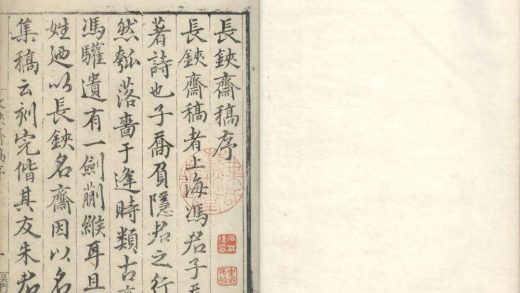 長鋏齋稿序
長鋏齋稿者上海馮君子喬
著詩也子喬負隱君之行
然瓠落嗇于逢時類古
馮驩遺有一劍蒯緱耳且
姓迺以長鋏名齋因以名
集稿云刻完偕其友朱君